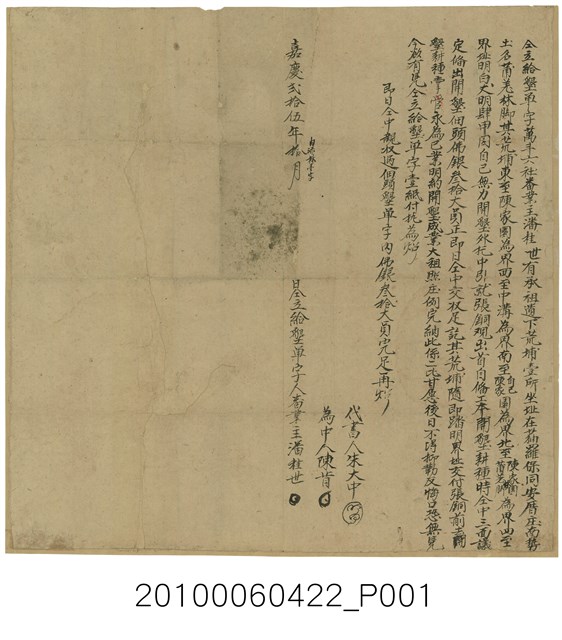 仝立給墾單字萬斗六社番業主潘桂世有承祖遺下荒埔壹所坐址在茄羅保同安厝庄南勢
土名莆羌林脚其荒埔東至陳家園為界西至中溝為界南至自己陳家園為界北至陳家園為界四至
界址明白大明肆甲因自己無力開墾外托中引就張銅觀出首自俻工本開墾耕種時仝中三面議
定俻出開墾佃頭佛銀叁拾大員正即日仝中交收足訖其荒埔隨即踏明界址交付張銅前去開
墾耕種掌管永為己業明約開墾成業大租照庄例完納此係二比甘愿後日不得抑勒反悔口恐無凴
今欲有凴仝立給墾單字壹紙付執為炤
即日仝中親收過佃頭墾單字內佛銀叁拾大員完足再炤
代書人朱大中
為中人陳肯
嘉慶貳拾伍年拾月 日仝立給墾單字人番業主潘桂世
20100060422_P001